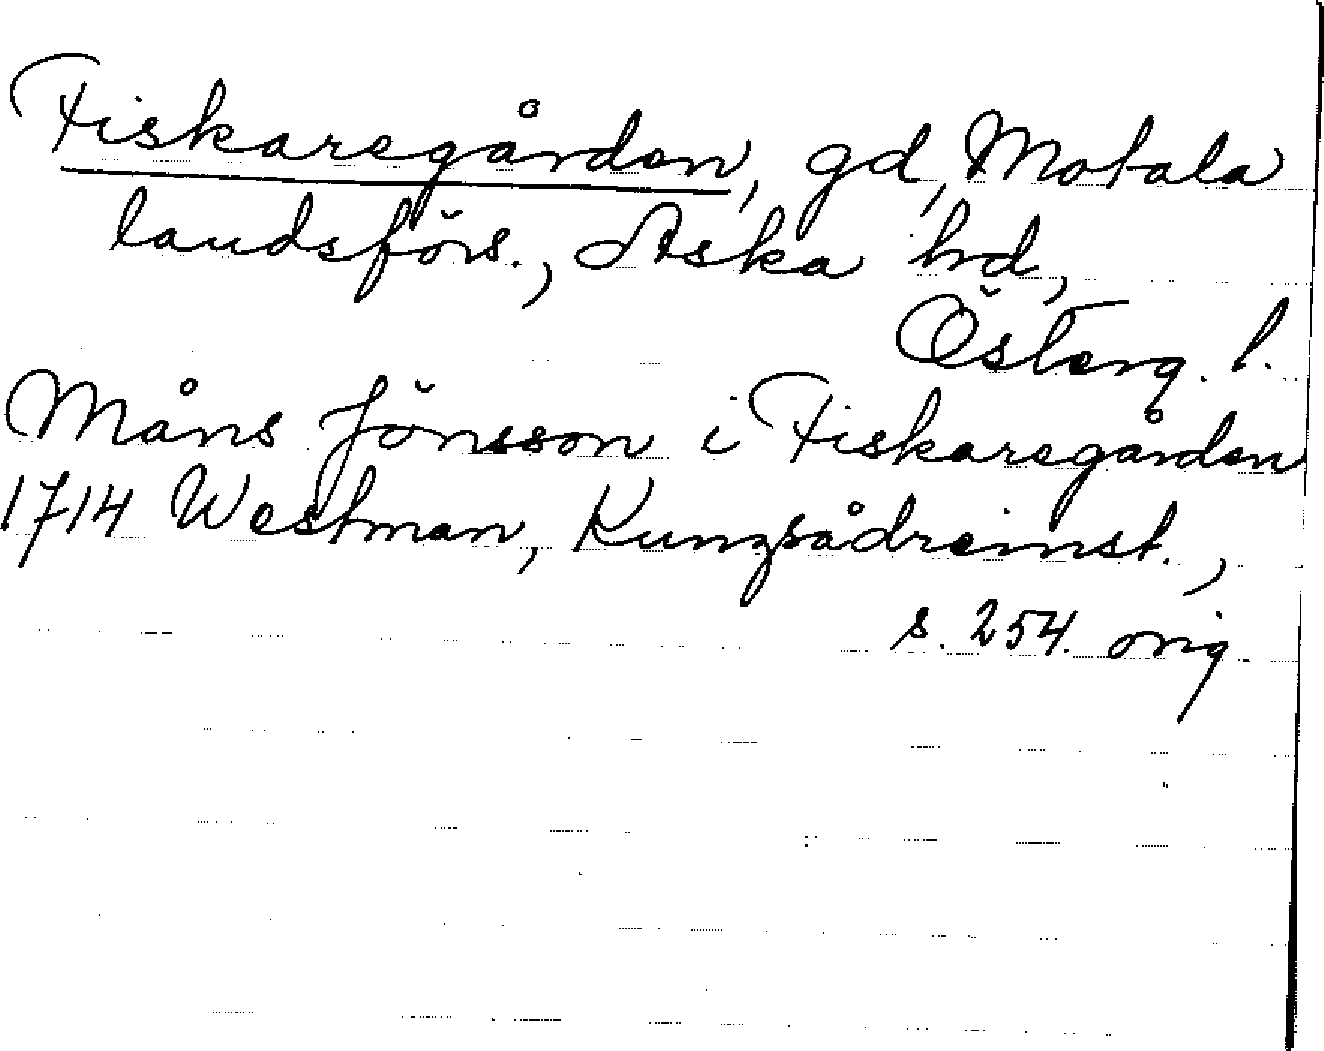 Fiskaregården, gd, Motala
landsförs., Aska hd,
Österg. l.
Måns Jönsson i Fiskaregården
1714 Westman, Kungsådreinst.,
s. 254. orig